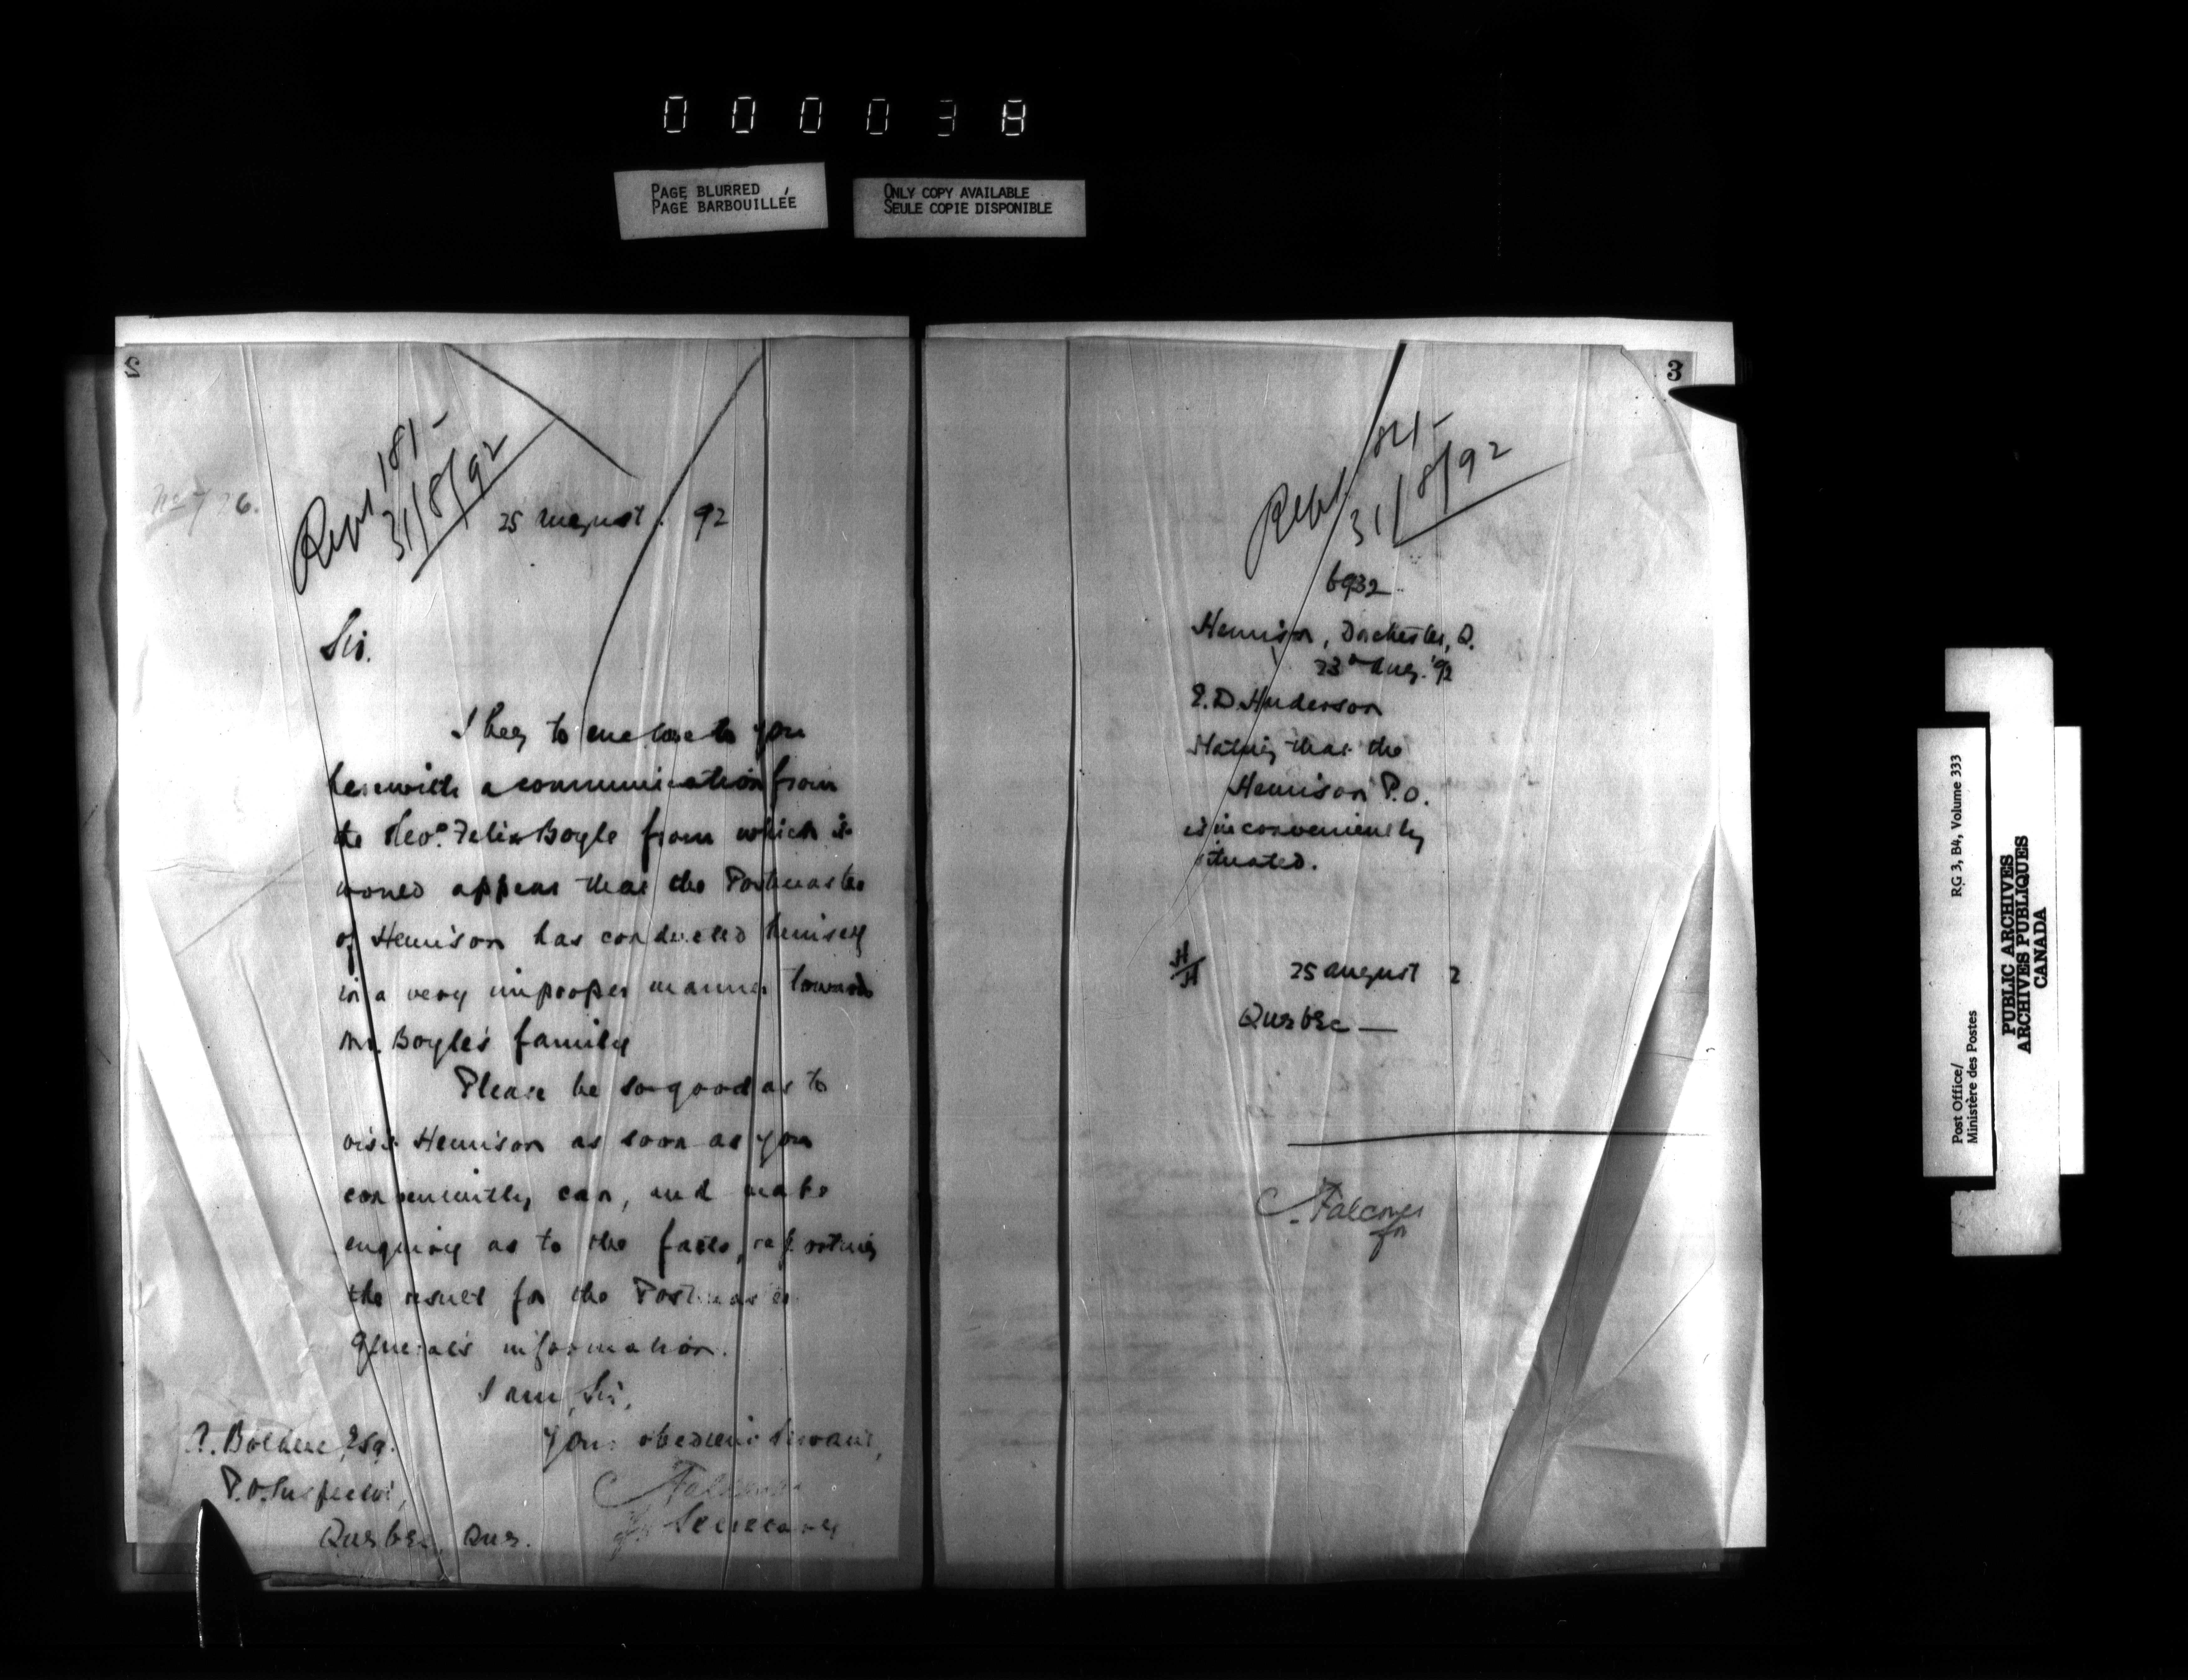 000038
PAGE BLURRED
PAGE BARBOUILLÉE
ONLY COPY AVAILABLE
SEULE COPIE DISPONIBLE
2
181-
31/8/92
25 August 92
Sir.
I beg to enclose to you
herewith a communication from
the Revd. Felix Boyle from which it
would appear that the Postmaster
of Hemison has conducted himself
in a very improper manner towards
Mr. Boyle's family
Please be so good as to
visit Hemison as soon as you
conveniently can, and make
enquiry as to the facts, reporting
the result for the Postmaster
General's information.
I am, Sir,
Your obedient Servant,
C Falconer
for Secretary
A. Bolduc, Esq.
P.O. Inspector,
Quebec, Que.
3
31/8/92
6932
Hemison, Dorchester, Q.
23d Aug. '92
E. D. Henderson
Stating that the
Hemison P.O.
is inconveniently
situated.
H/H
25 August 2
Quebec —
C. Falconer
for
Post Office/
Ministère des Postes
RG 3, B4, Volume 333
PUBLIC ARCHIVES
ARCHIVES PUBLIQUES
CANADA